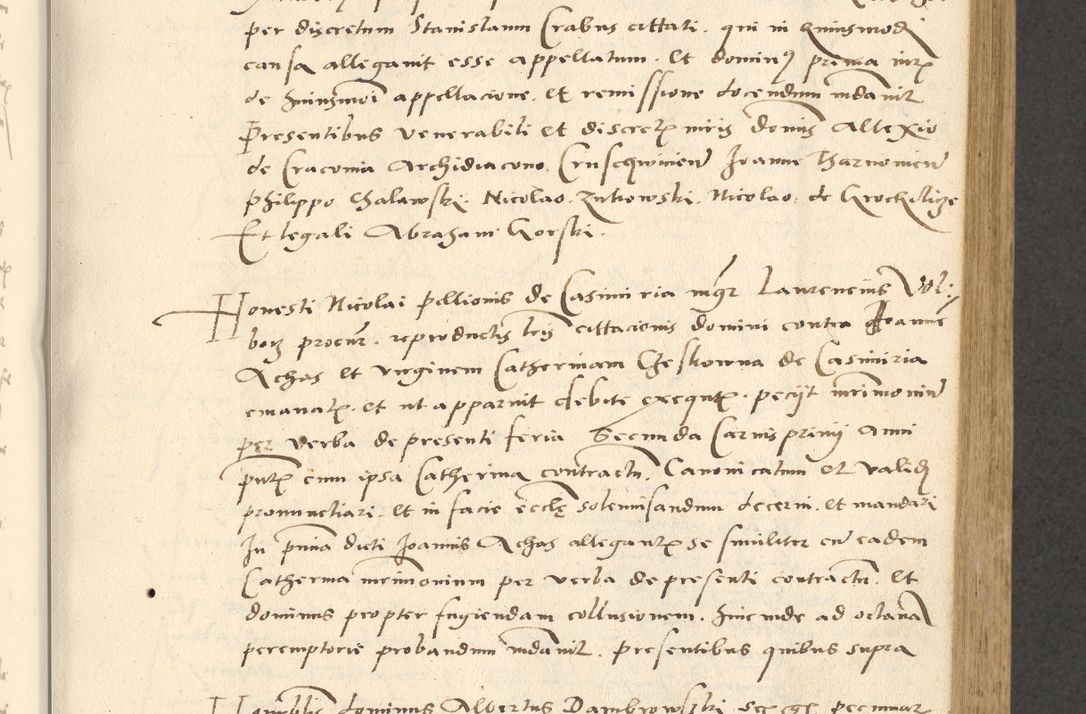 per discretum Stanislaum Crabus cittati. qui in huiusmodi
causa allegavit esse appellatum. Et dominus prima
de huiusmoi appellacione. et remissione docendum mdavit
Presentibus venerabili et discret. viris domis Allexio
de Cracovia Archidiacono. Cruseqwicien Joanne Tharnowien
Philippo Chalawski. Nicolao. Zukowski. Nicolao. de
Et legali Abraham Gorski.
Honesti Nicolai pellionis de Casimiria mgr Laurencius Vol:
borz procur. reproductis lris cittacionis domini contra Joanne
Achas et virginem Catherinam Cheskowna de Casimiria
emanat. et ut apparuit debite exequt. peciit mrimoniu
per verba de presenti feria Secunda Carnisprivij Anni
pnt. cum ipsa Catherina contractu. Canonicatum et valid
pronunctiari. et in facie eccle solemnisandum decerni. et mandari
In pnia dicti Joannis Achas allegant. se similiter cu eadem
Catherina mrimonium per verba de presenti contractu. Et
dominus propter fugiendam collusionem. hincinde ad octava
peremptorie probandum mdavit. Presentibus quibus supra
dominus Albertus Dambrowski